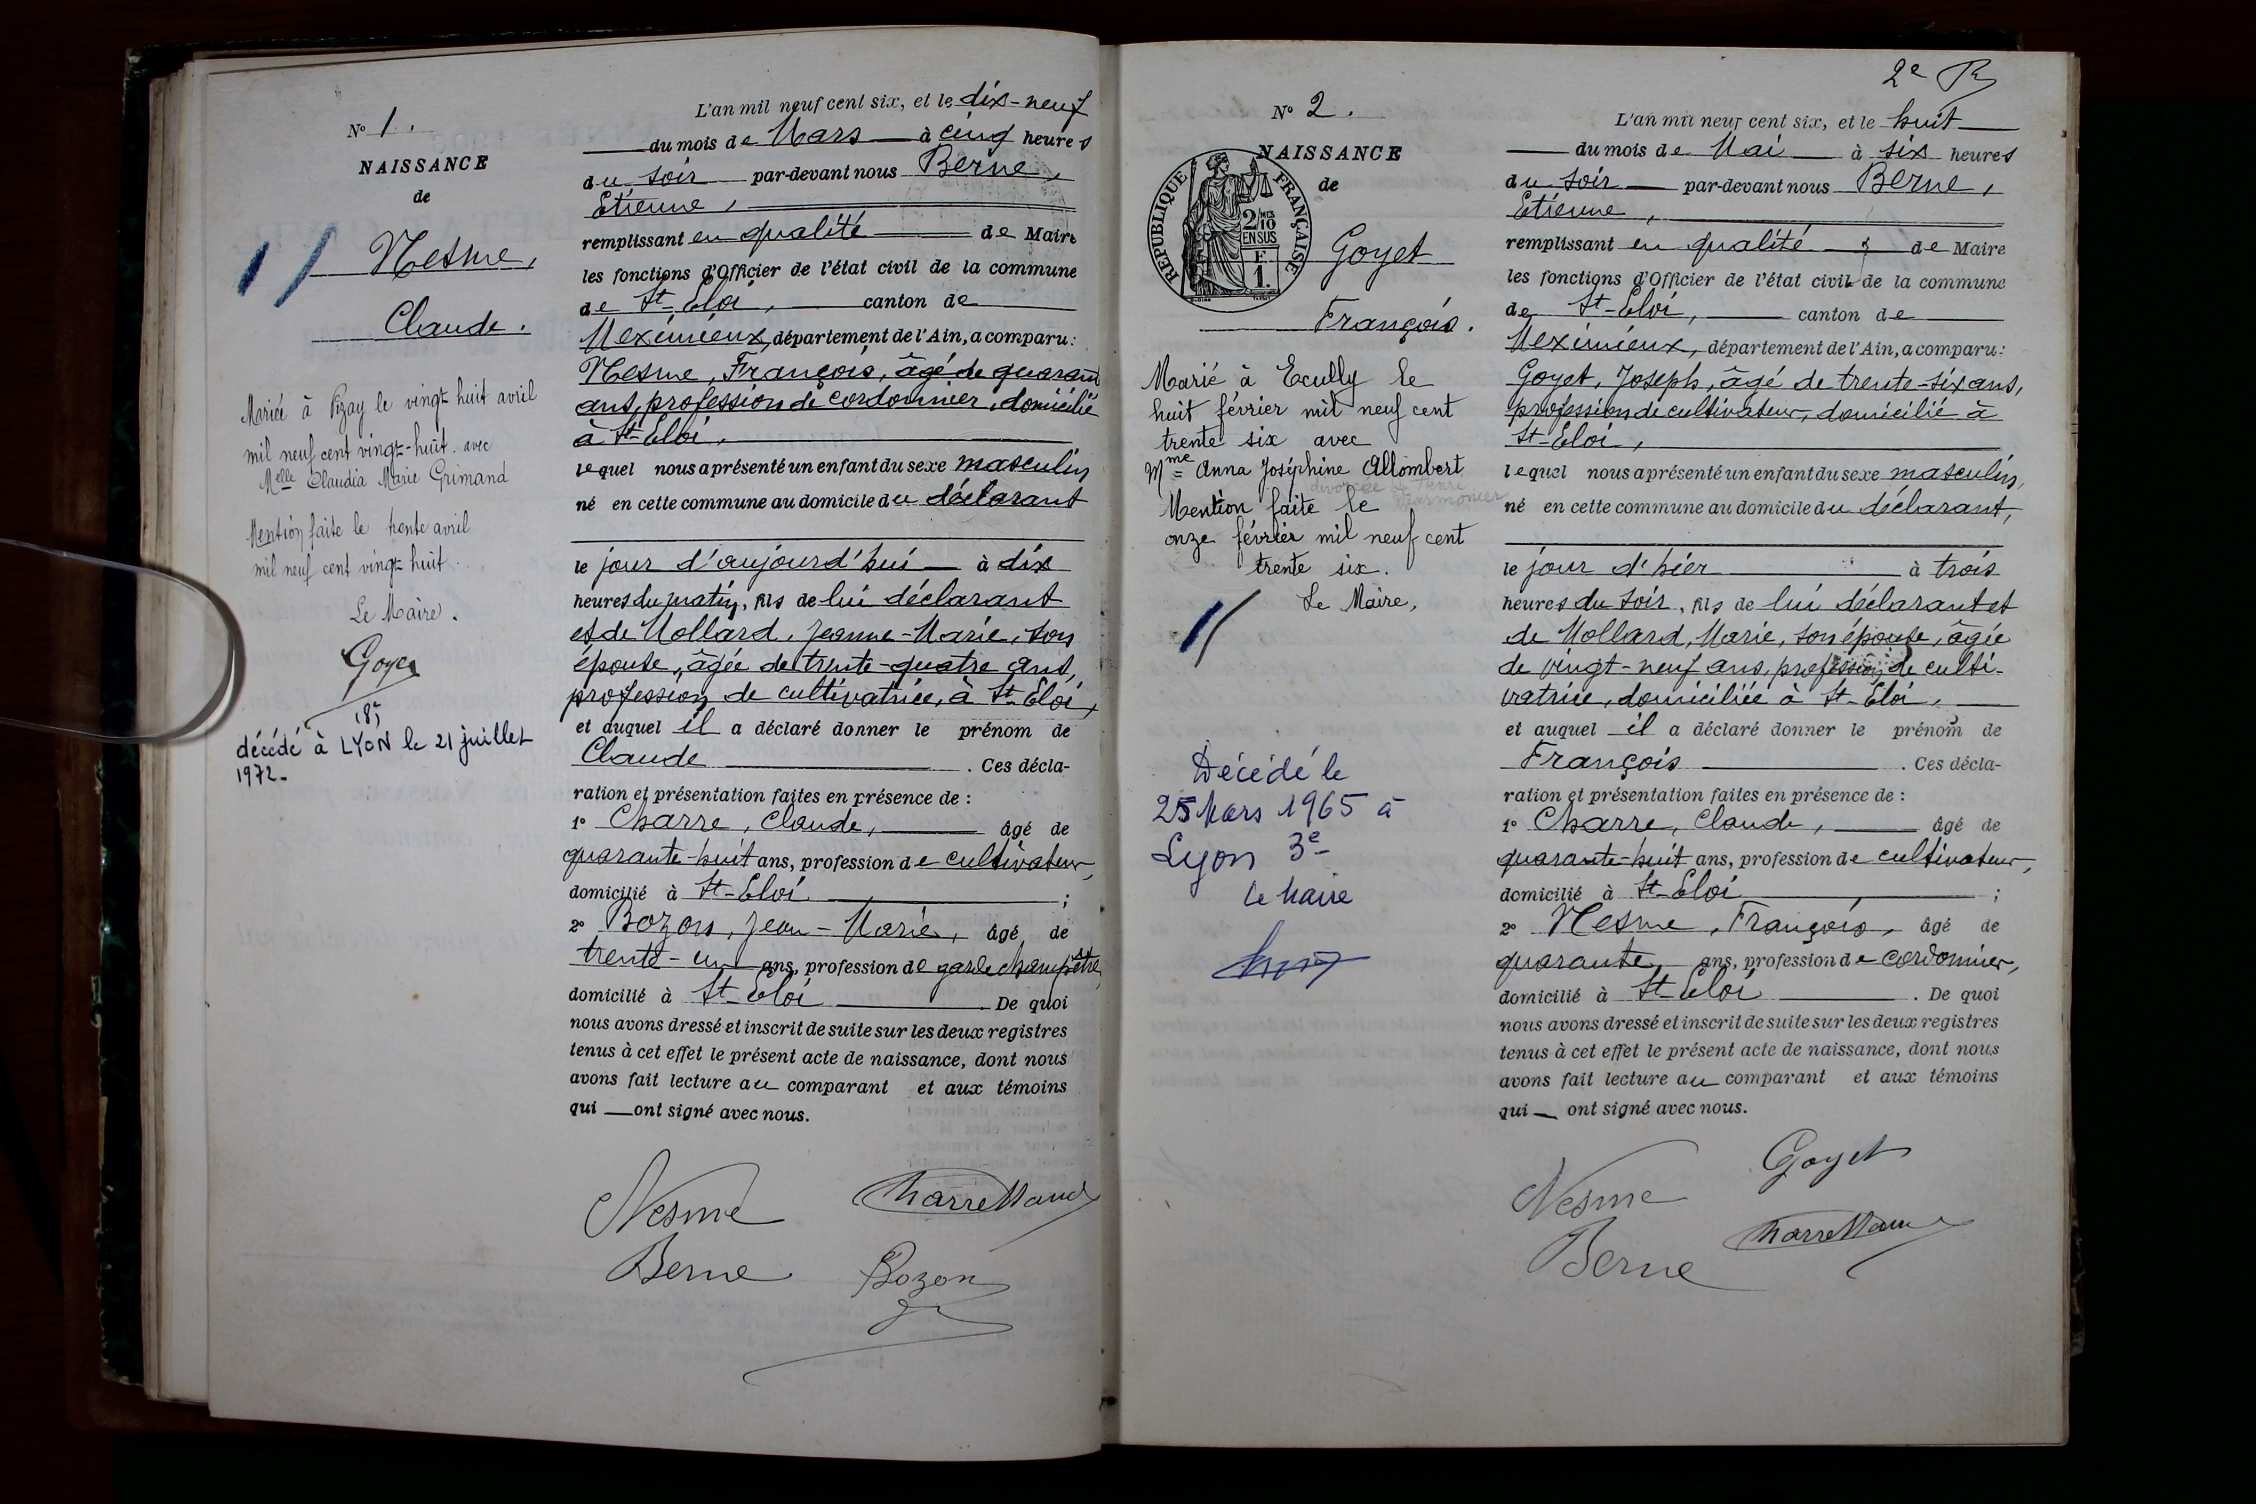 N° 1.
NAISSANCE
de
Nesme,
Claude.
Mariée à Pizay le vingt huit avril
mil neuf cent vingt-huit. avec
Melle Claudia Marie Grimand
Mention faite le trente avril
mil neuf cent vingt huit.
Le Maire.
Goyet
décédé à LYON le 21 juillet
1972-
L'an mil neuf cent six, et le dix-neuf
du mois de Mars à cinq heures
du soir par-devant nous Berne,
Etienne,
remplissant en qualité de Maire
les fonctions d'Officier de l'état civil de la commune
de St-Eloi, canton de
Meximieux, département de l'Ain, a comparu:
Nesme, François, âgé de quarante
ans, profession de cordonnier, domicilié
à St-Eloi,
lequel nous a présenté un enfant du sexe masculin
né en cette commune au domicile du déclarant
le jour d'aujourd'hui à dix
heures du matin, fils de lui déclarant
et de Mollard, Jeanne-Marie, son
épouse, âgée de trente-quatre ans,
profession de cultivatrice, à St-Eloi,
et auquel il a déclaré donner le prénom de
Claude. Ces décla-
ration et présentation faites en présence de:
1° Charre, Claude, âgé de
quarante-huit ans, profession de cultivateur,
domicilié à St-Eloi;
2° Bozon, Jean-Marie, âgé de
trente-un ans, profession de garde champêtre,
domicilié à St-Eloi. De quoi
nous avons dressé et inscrit de suite sur les deux registres
tenus à cet effet le présent acte de naissance, dont nous
avons fait lecture au comparant et aux témoins
qui ont signé avec nous.
Nesme
Charre Claude
Berne
Bozon
2e
N° 2.
NAISSANCE
de
RÉPUBLIQUE FRANÇAISE
2/10 MES
EN SUS
F
1.
Goyet
François.
Marié à Ecully le
huit février mil neuf cent
trente six avec
Mme Anna Joséphine Allombert
divorcée de Henri
Mention faite le
onze février mil neuf cent
trente six.
Le Maire,
Décédé le
25 Mars 1965 à
Lyon 3e
Le Maire
L'an mil neuf cent six, et le huit
du mois de Mai à six heures
du soir par-devant nous Berne,
Etienne,
remplissant en qualité de Maire
les fonctions d'Officier de l'état civil de la commune
de St-Eloi, canton de
Meximieux, département de l'Ain, a comparu:
Goyet, Joseph, âgé de trente-six ans,
profession de cultivateur, domicilié à
St-Eloi,
lequel nous a présenté un enfant du sexe masculin,
né en cette commune au domicile du déclarant,
le jour d'hier à trois
heures du soir, fils de lui déclarant et
de Mollard, Marie, son épouse, âgée
de vingt-neuf ans, profession de culti-
vatrice, domiciliée à St-Eloi,
et auquel il a déclaré donner le prénom de
François. Ces décla-
ration et présentation faites en présence de:
1° Charre, Claude, âgé de
quarante-huit ans, profession de cultivateur,
domicilié à St-Eloi;
2° Nesme, François, âgé de
quarante ans, profession de cordonnier,
domicilié à St-Eloi. De quoi
nous avons dressé et inscrit de suite sur les deux registres
tenus à cet effet le présent acte de naissance, dont nous
avons fait lecture au comparant et aux témoins
qui ont signé avec nous.
Goyet
Nesme
Charre Claude
Berne